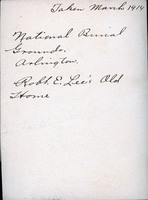 Taken March 1914
National Burial
Grounds.
Arlington.
Robt. E. Lee's Old
Home